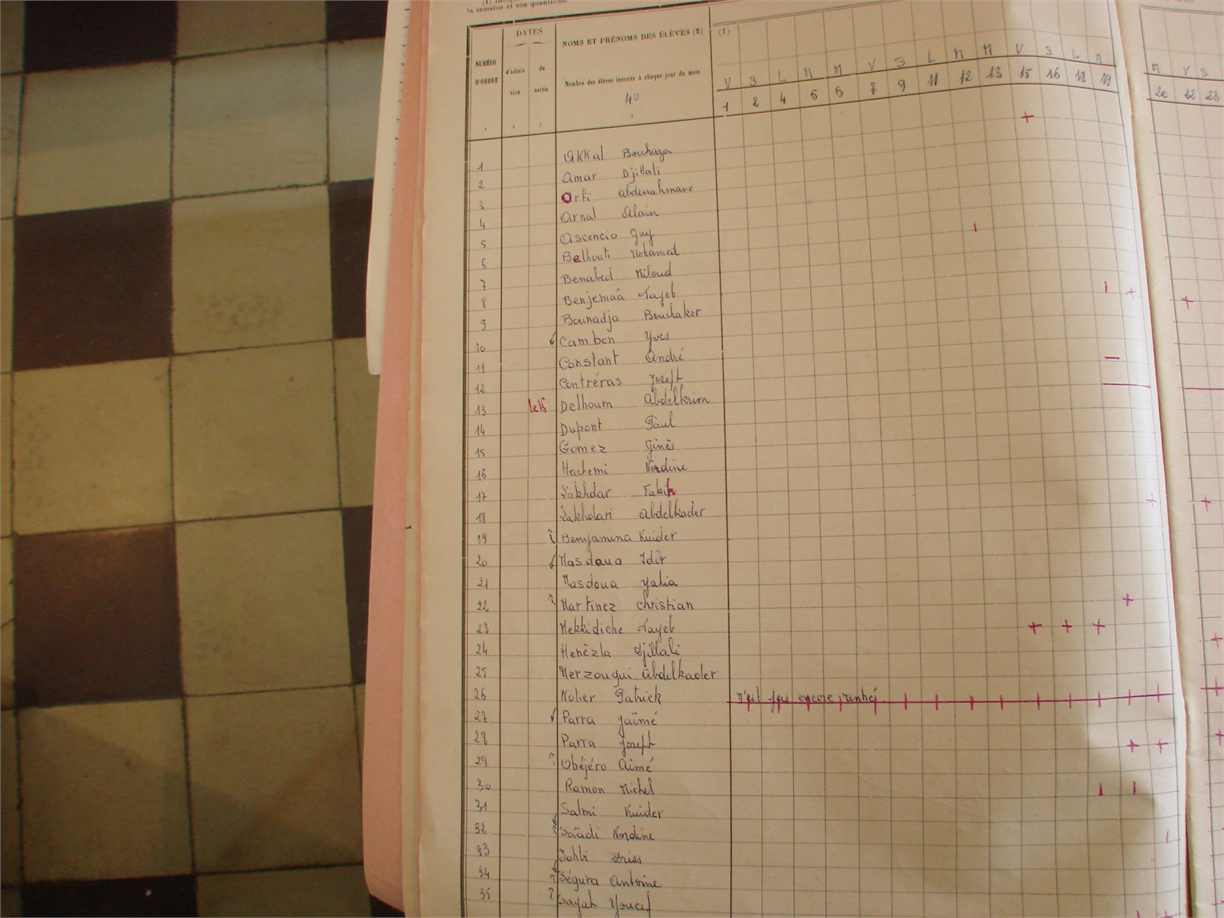 la semaine et son quantième.
DATES
NUMÉRO D'ORDRE
d'admission
de sortie
NOMS ET PRÉNOMS DES ÉLÈVES (2)
(1)
Nombre des élèves inscrits à chaque jour du mois
40
V S L M M V S L M M V S L M M V S
1 2 4 5 6 8 9 11 12 13 15 16 18 19 20 22 23
1 Akkal
2 Amar Djillali
3 Orfi abderrahmane
4 Arnal Alain
5 Ascencio Guy
6 Belhouti Mohamed
7 Benabed Miloud
8 Benjemaâ Tayeb
9 Bounadja Bouchaker
10 Cambon Yves
11 Constant André
12 Contréras Joseph
13 Delhoum Abdelkrim
14 Dupont Paul
15 Gomez Ginès
16 Hachemi Nordine
17 Lakhdar Fakih
18 Lakhdari Abdelkader
19 Benyamina Kuider
20 Masdoua Idir
21 Masdoua Yahia
22 Martinez christian
23 Mekkidiche Tayeb
24 Menèzla Djillali
25 Merzougui abdelkader
26 Nolier Patrick n'est pas encore rentré.
27 Parra Jaïmé
28 Parra Joseph
29 Obéjéro Aimé
30 Ramon Michel
31 Salmi Kuider
32 Saâdi Nordine
33 Driss
34 Ségura Antoine
35 Sayah Youcef